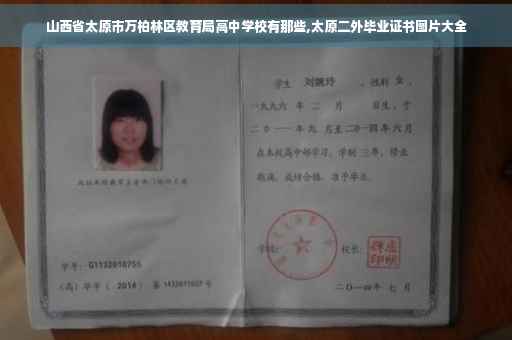 山西省太原市万柏林区教育局高中学校有那些,太原二外毕业证书图片大全
学生 刘婉玲 ,性别 女 ,
一九九六 年 二 月 日生，于
二〇一一 年 九 月至 二〇一四 年 六 月
在本校高中部学习，学制 三 年，修业
期满，成绩合格，准予毕业。
学校：
校长：
学号： G1132010755
（高）毕字（ 2014 ）第 1432011027 号
二〇一四年 七 月